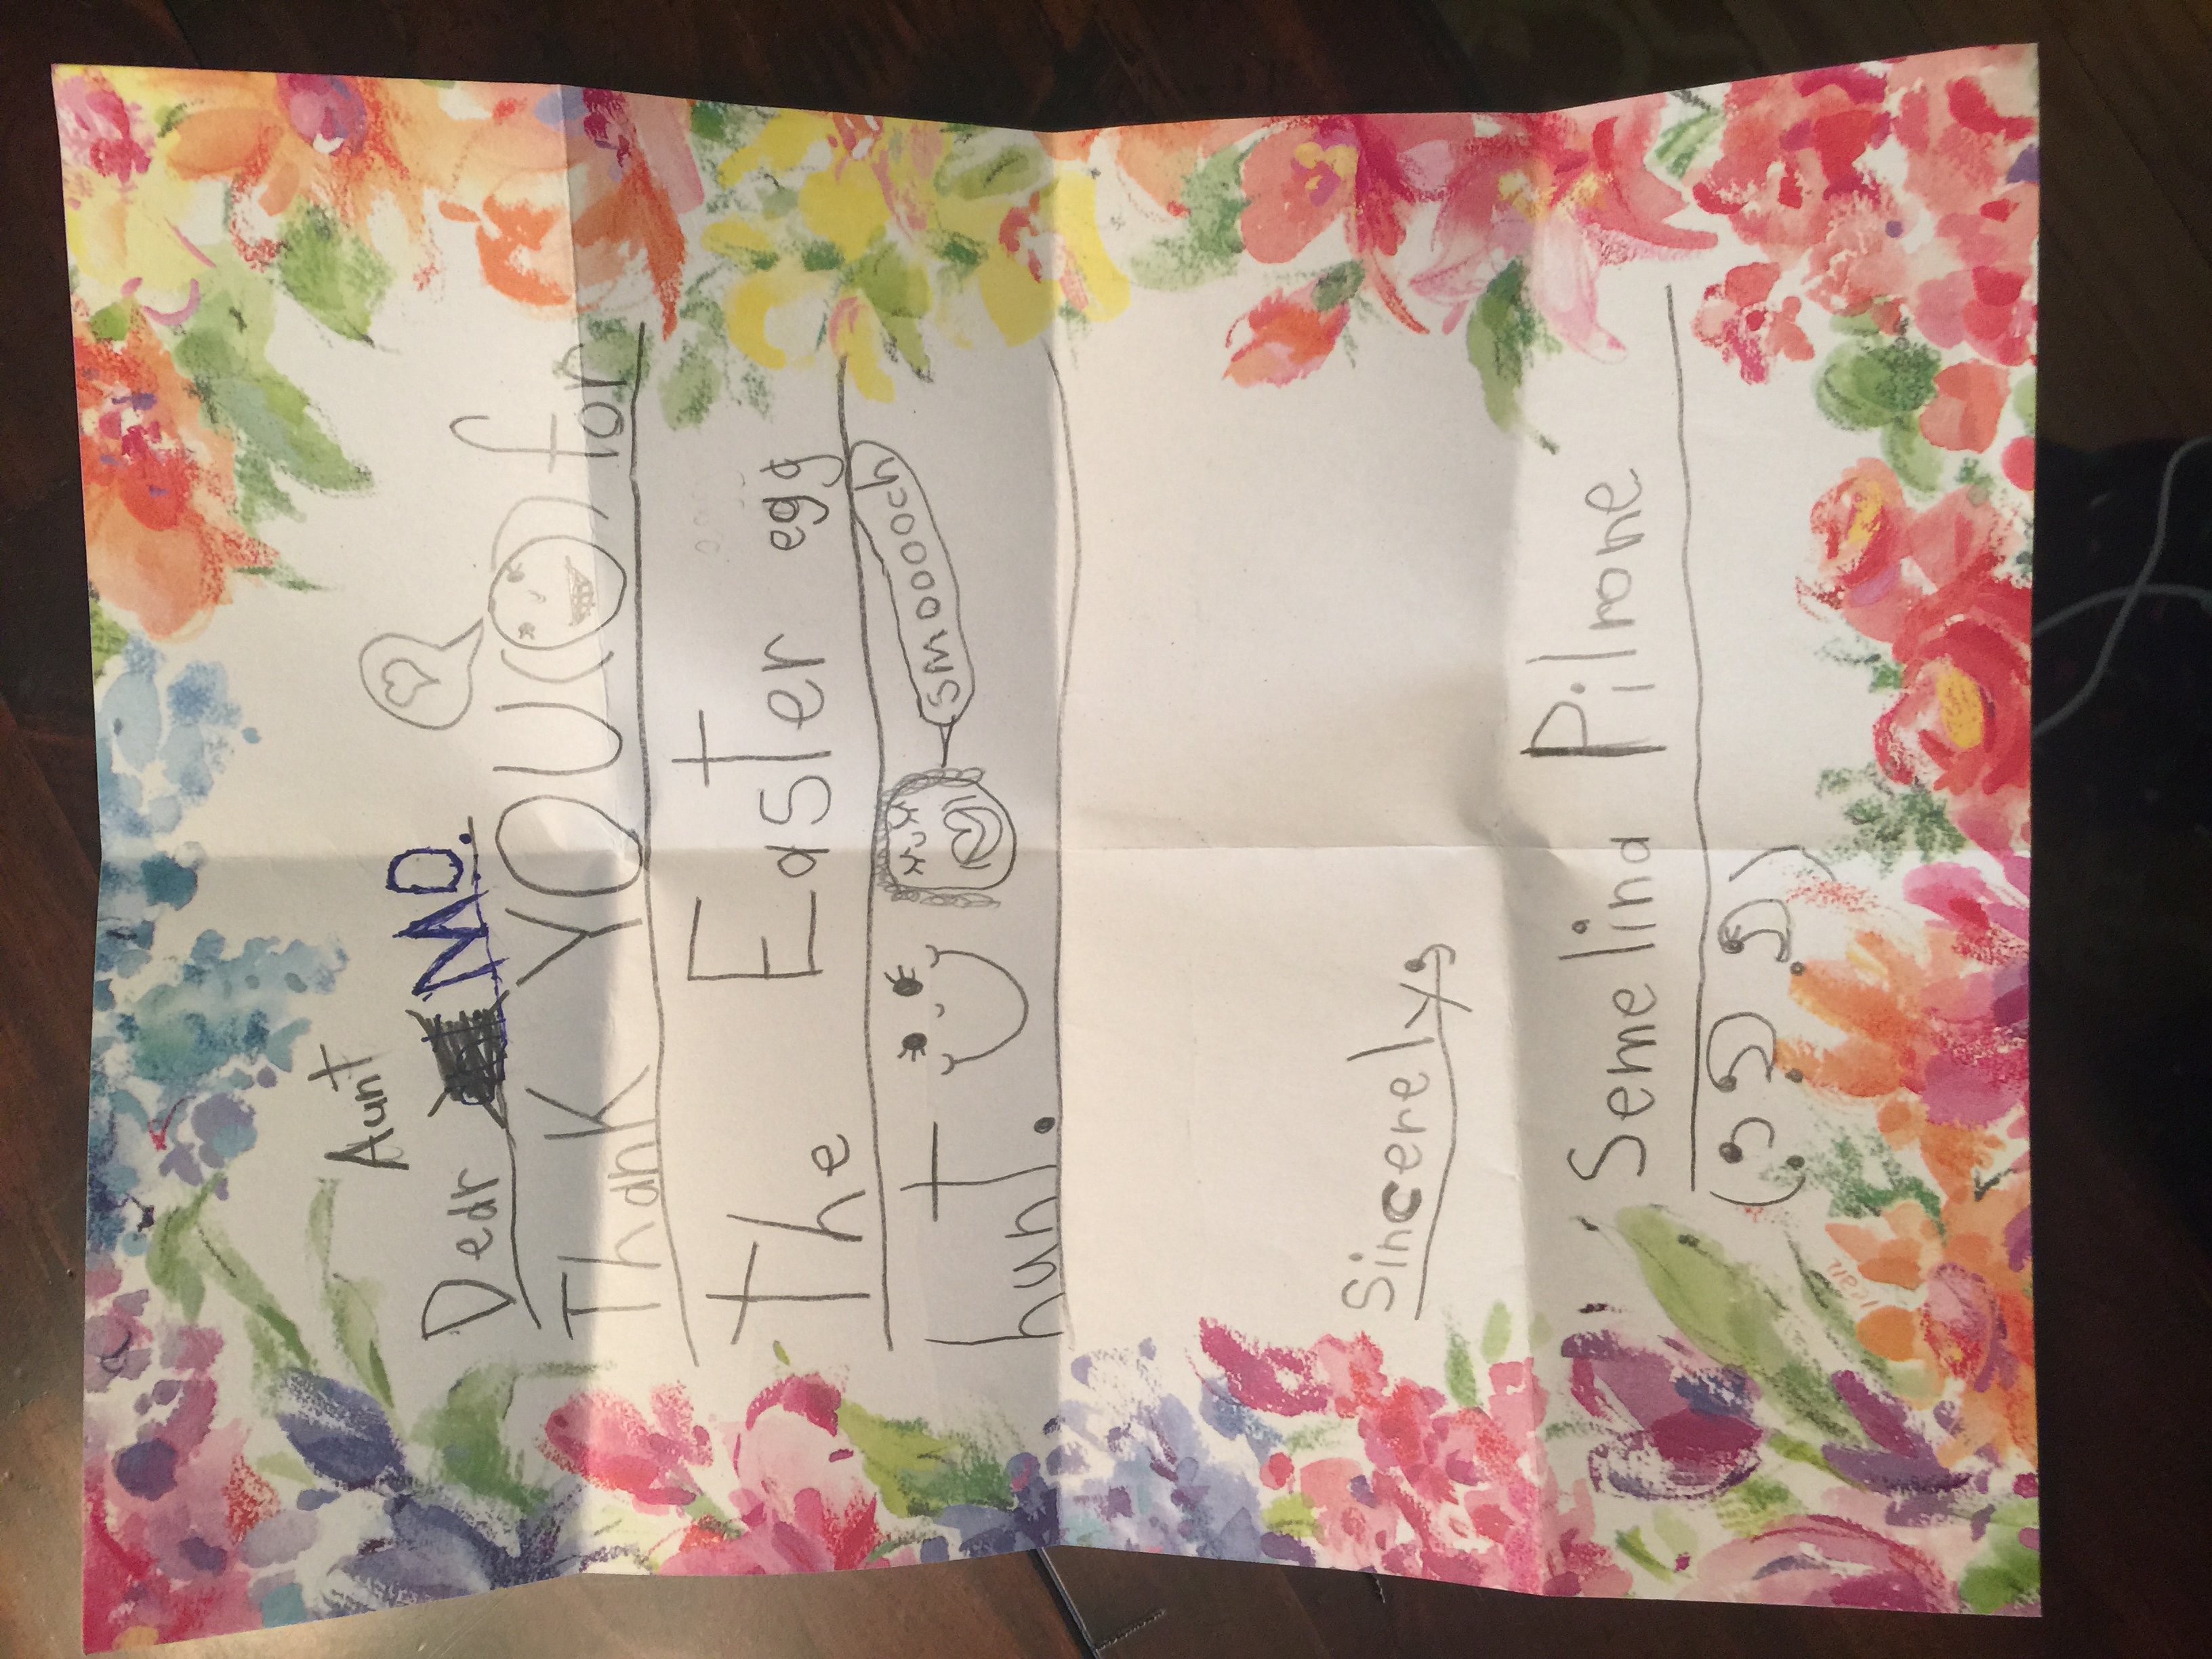 Aunt
Dear MO.
Thank YOU ( ) for
The Easter egg
hunt. smooooch
Sincerely,
Semelina Pilrone